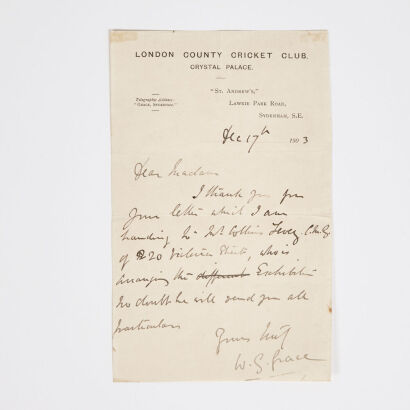 LONDON COUNTY CRICKET CLUB.
CRYSTAL PALACE.
"ST. ANDREW'S,"
Telegraphic Address:
"GRACE, SYDENHAM."
LAWRIE PARK ROAD,
SYDENHAM, S.E.
Dec 17th 1903
Dear Madam
I thank you for
your letter which I am
handing to Mr Collins Levey C.M.G.
of 20 Victoria Street, who is
arranging the different Exhibition
no doubt he will send you all
particulars
Yours truly
W. G. Grace